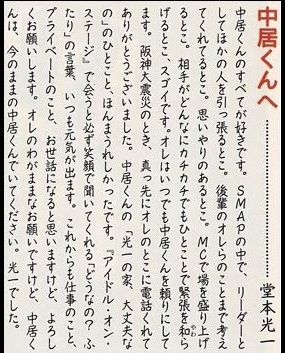 中居くんへ
堂本光一
中居くんのすべてが好きです。SMAPの中で、リーダーと
してほかの人を引っ張るとこ。後輩のオレらのことまで考え
てくれてるとこ。思いやりのあるとこ。MCで場を盛り上げ
るとこ。相手がどんなにカチカチでもひとことで緊張を和ら
げるとこ、スゴイです。オレはいつでも中居くんを頼りにして
ます。阪神大震災のとき、真っ先にオレのとこに電話くれて
ありがとうございました。中居くんの「光一の家、大丈夫な
の」のひとこと、ほんまうれしかったです。『アイドル・オン・
ステージ』で会うと必ず笑顔で聞いてくれる「どうなの？ふ
たり」の言葉、いつも元気が出ます。これからも仕事のこと、
プライベートのこと、お世話になると思いますけど、よろし
くお願いします。オレのわがままなお願いですけど、中居く
んは、今のままの中居くんでいてください。光一でした。